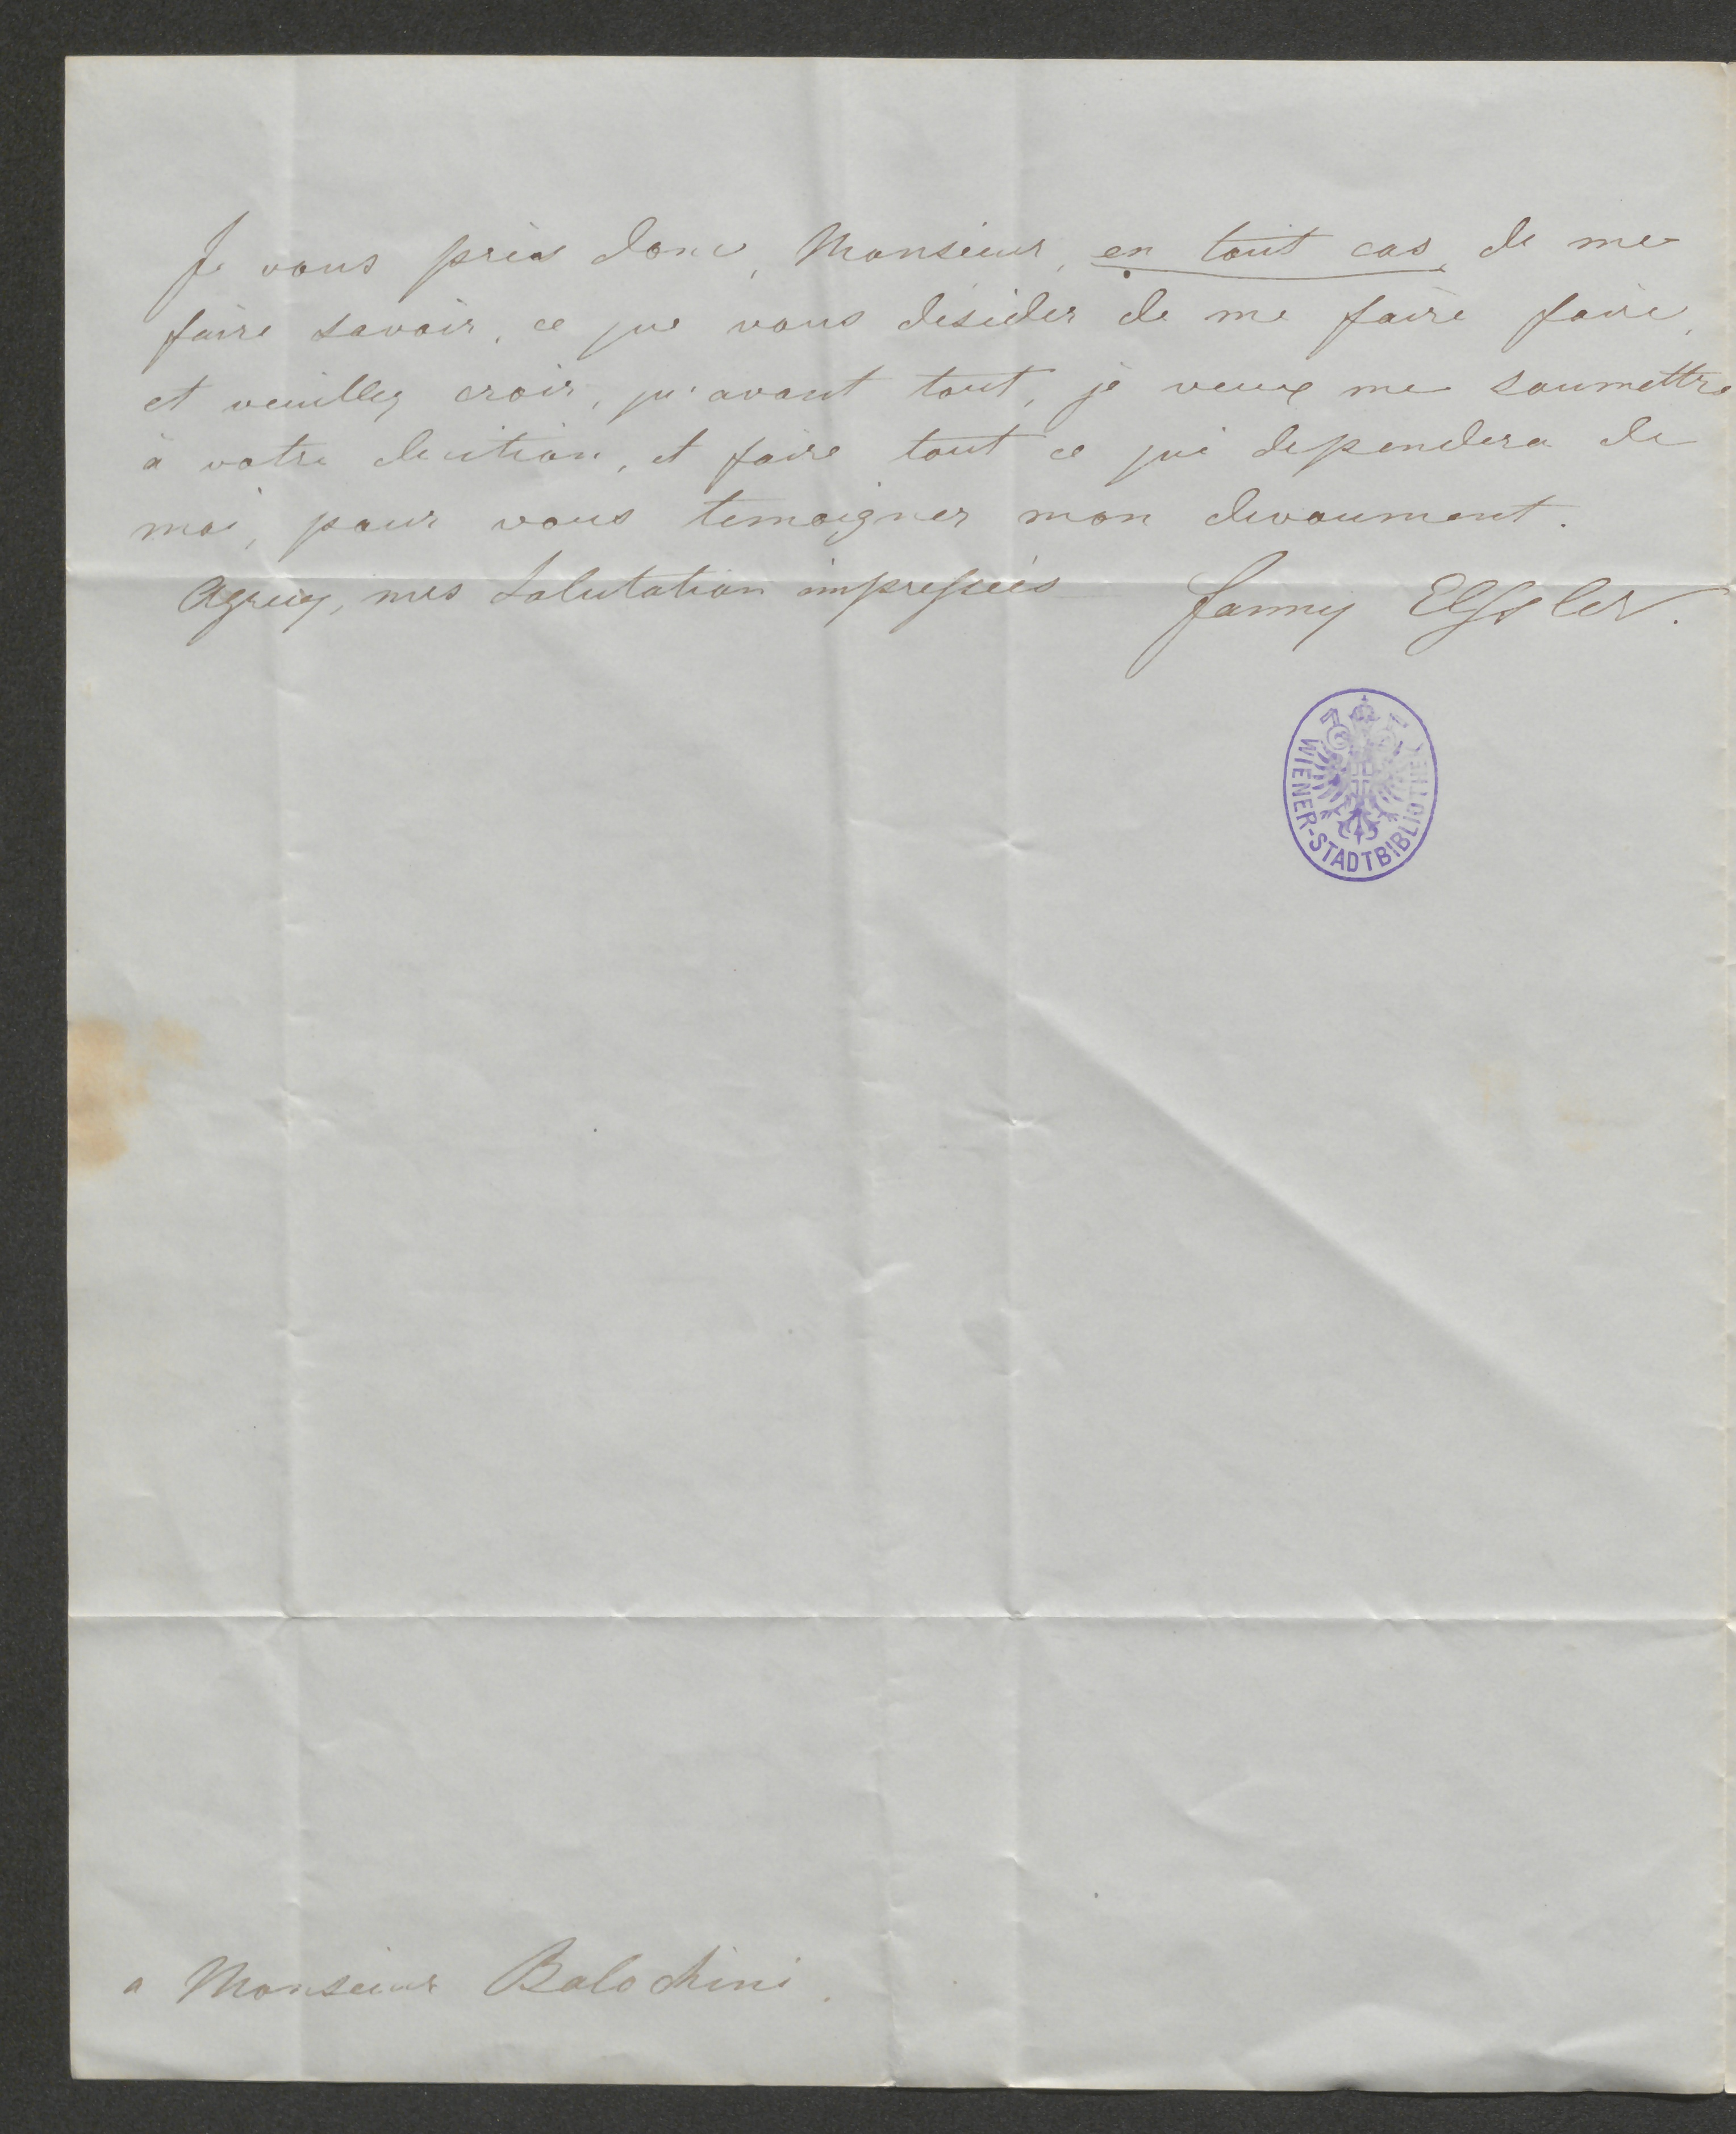 Je vous pries donc, Monsieur, en tout cas, de me
faire savoir, ce que vous desider de me faire faire,
et veuillez croir, qu'avant tout, je veux me soumettre
à votre decition, et faire tout ce qui dependera de
moi, pour vous temoigner mon devoument.
Agreez, mes Salutation impressées Fanny Elssler.
WIENER-STADTBIBLIOTHEK
a Monsieur Balochini.